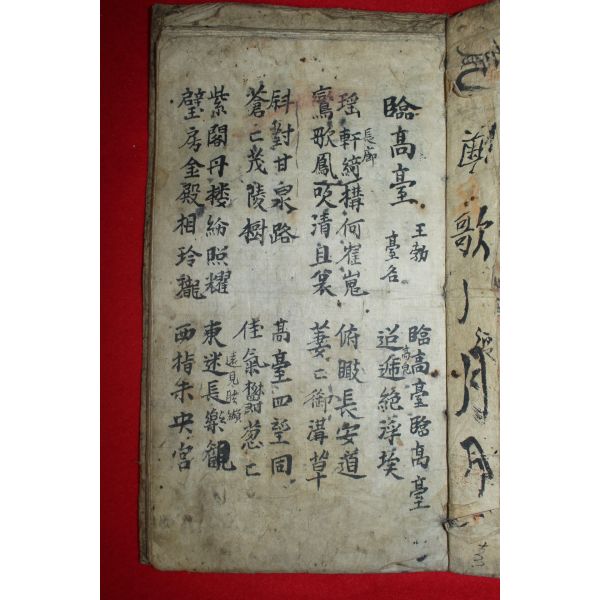 臨高臺
王勃
臺名
臨高臺臨高臺
迢遞絕浮埃
瑶軒綺構何崔嵬
長廊
鸞歌鳳吹清且哀
俯瞰長安道
萋〻御溝草
斜對甘泉路
蒼〻茂陵樹
高臺四望同
佳氣欝葱〻
紫閣丹楼紛照耀
璧房金殿相玲瓏
東迷長樂觀
遠見
西指未央宮